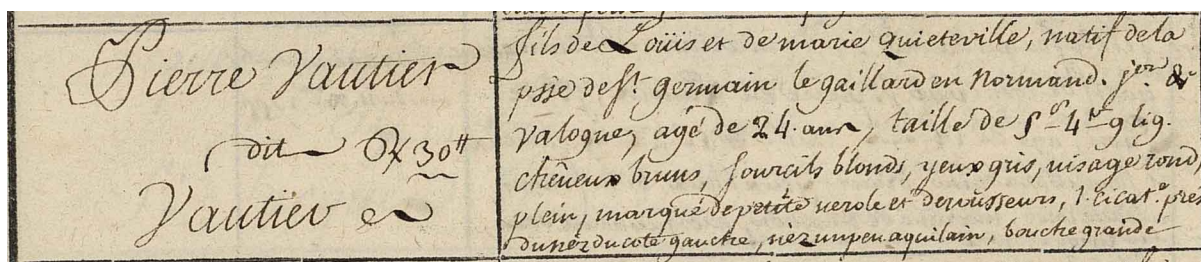 Pierre Vautier
dit 30tt
Vautier
fils de Loüis et de marie Quieteville, natif de la
psse de St. germain le gaillard en Normand. jon. de
Valogne, agé de 24. ans, taille de 5 4 9 lig.
cheveux bruns, sourcils blonds, yeux gris, visage rond,
plein, marqué de petite verole et de rousseurs, 1. cicat.e pres
du néz du coté gauche, néz un peu aquilain, bouche grande